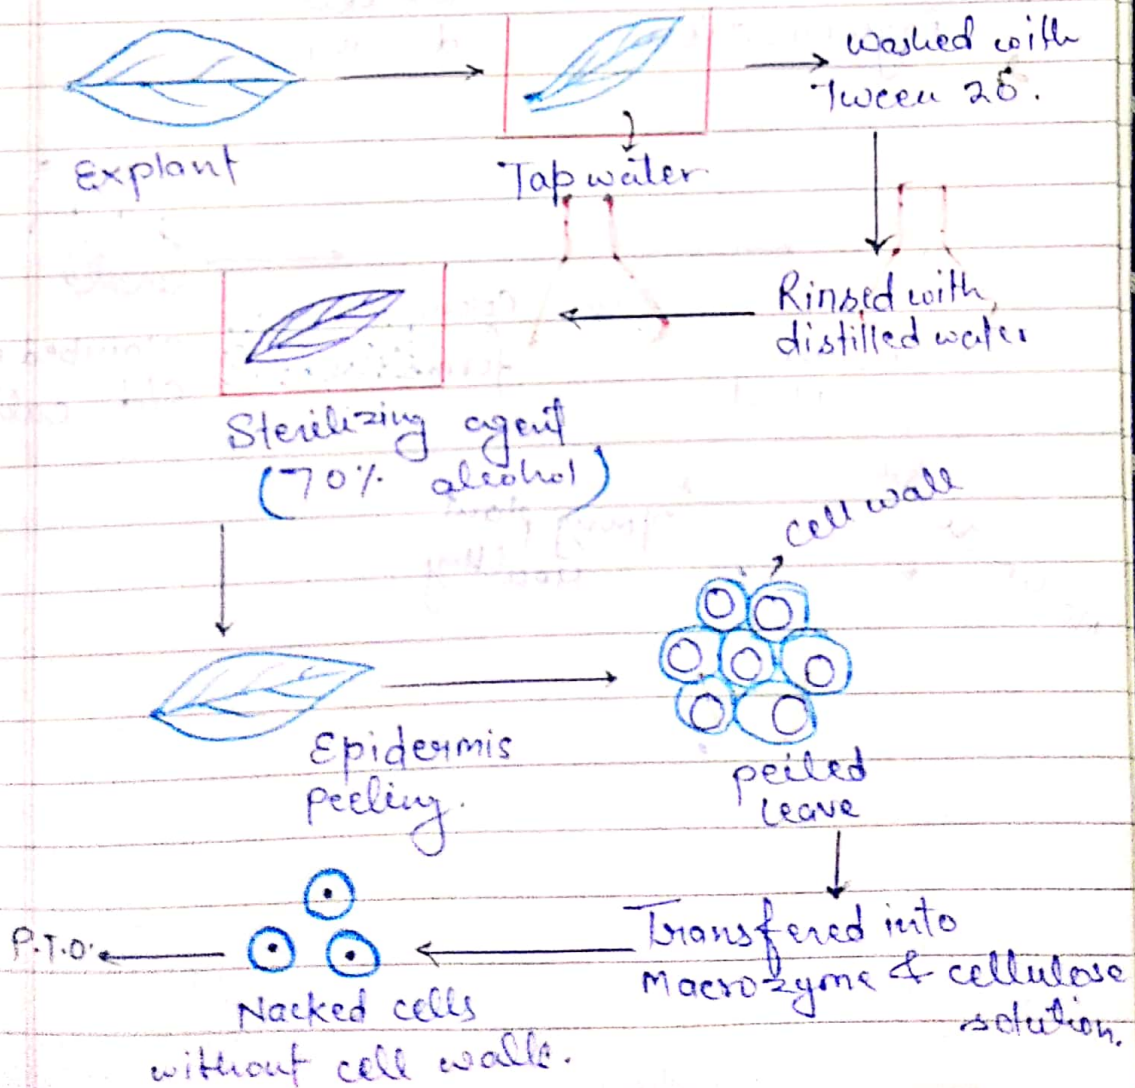 Explant
Tap water
washed with
Tween 20.
Rinsed with
distilled water
Sterilizing agent
(70% alcohol)
cell wall
Epidermis
peeling.
peiled
leave
Transfered into
Macrozyme & cellulose
solution.
Nacked cells
without cell walls.
P.T.O.